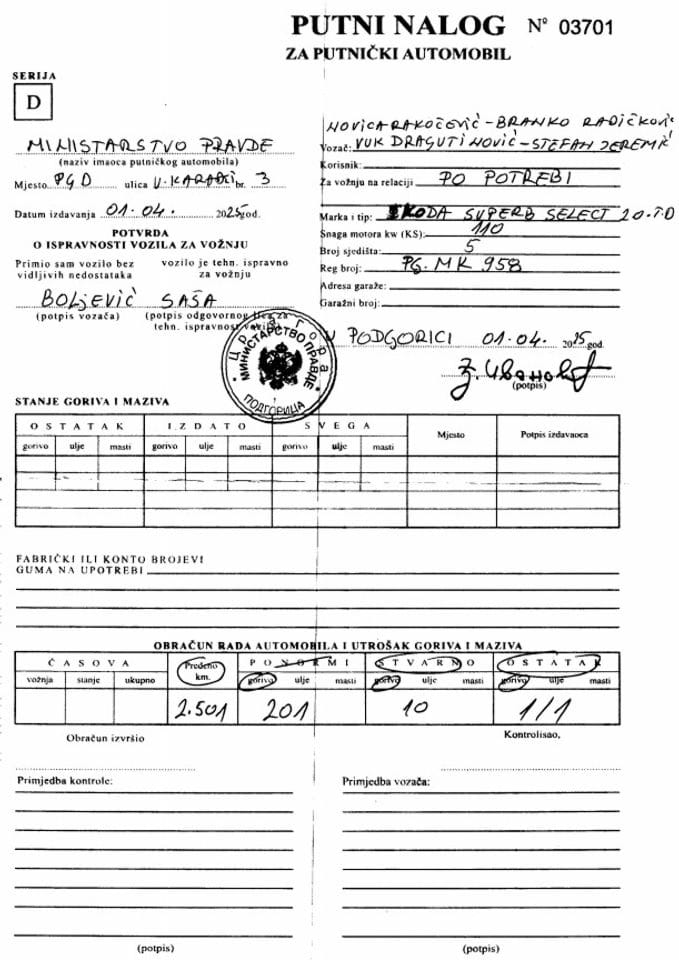 PUTNI NALOG Nº 03701
ZA PUTNIČKI AUTOMOBIL
SERIJA
D
MINISTARSTVO PRAVDE
(naziv imaoca putničkog automobila)
Mjesto PGD ulica V. KARADŽI br. 3
Datum izdavanja 01.04. 2025 god.
POTVRDA
O ISPRAVNOSTI VOZILA ZA VOŽNJU
Primio sam vozilo bez vidljivih nedostataka
vozilo je tehn. ispravno za vožnju
BOLJEVIĆ SAŠA
(potpis vozača) (potpis odgovornog lica za tehn. ispravnost vozila)
NOVICA RAKOČEVIĆ - BRANKO RADIČKOVIĆ
Vozač: VUK DRAGUTINOVIĆ - STEFAN JEREMIĆ
Korisnik:
Za vožnju na relaciji PO POTREBI
Marka i tip: ŠKODA SUPERB SELECT 2.0 TD
Snaga motora kw (KS): 110
Broj sjedišta: 5
Reg broj: PG. MK 958
Adresa garaže:
Garažni broj:
U PODGORICI 01.04. 2025 god.
З. Ивановић
(potpis)
Црна Гора
МИНИСТАРСТВО ПРАВДЕ
ПОДГОРИЦА
STANJE GORIVA I MAZIVA
OSTATAK IZDATO SVEGA Mjesto Potpis izdavaoca
gorivo ulje masti gorivo ulje masti gorivo ulje masti
FABRIČKI ILI KONTO BROJEVI
GUMA NA UPOTREBI
OBRAČUN RADA AUTOMOBILA I UTROŠAK GORIVA I MAZIVA
ČASOVA Pređeno km. PO NORMI STVARNO OSTATAK
vožnja stanje ukupno gorivo ulje masti gorivo ulje masti gorivo ulje masti
2.501 201 10 1/1
Obračun izvršio Kontrolisao,
Primjedba kontrole: Primjedba vozača:
(potpis) (potpis)